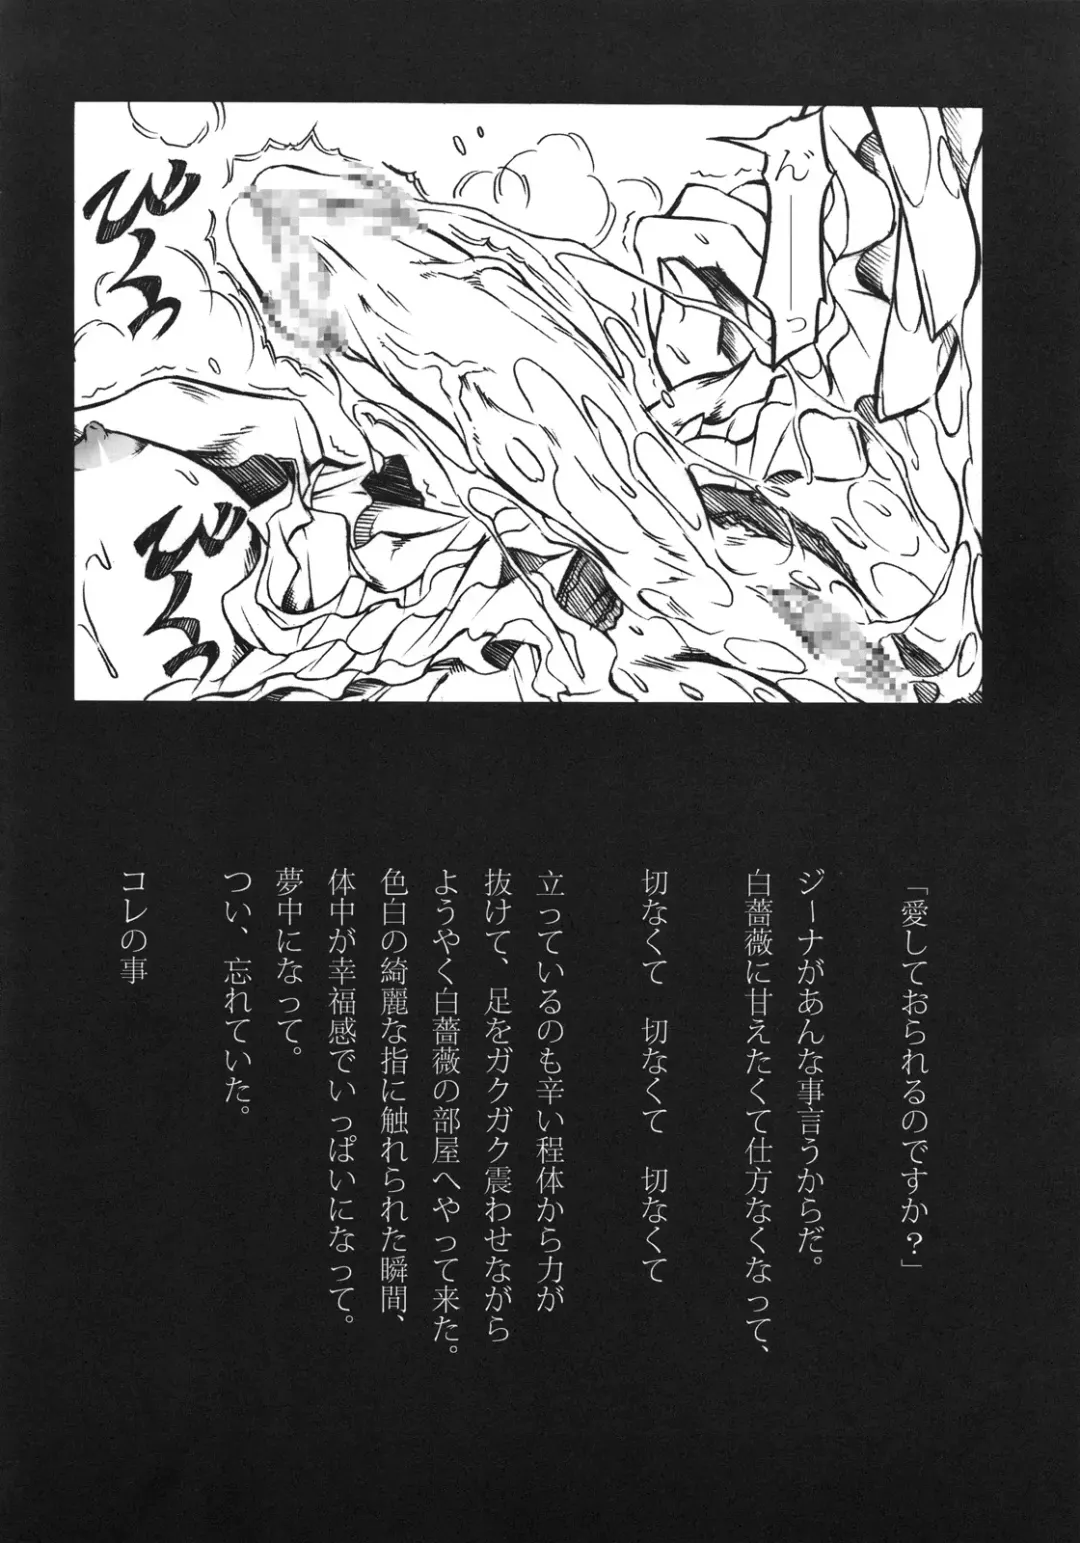 ん゛っ
びくっ
びくっ
「愛しておられるのですか？」
ジーナがあんな事言うからだ。
白薔薇に甘えたくて仕方なくなって、
切なくて　切なくて　切なくて
立っているのも辛い程体から力が
抜けて、足をガクガク震わせながら
ようやく白薔薇の部屋へやって来た。
色白の綺麗な指に触れられた瞬間、
体中が幸福感でいっぱいになって。
夢中になって。
つい、忘れていた。
コレの事